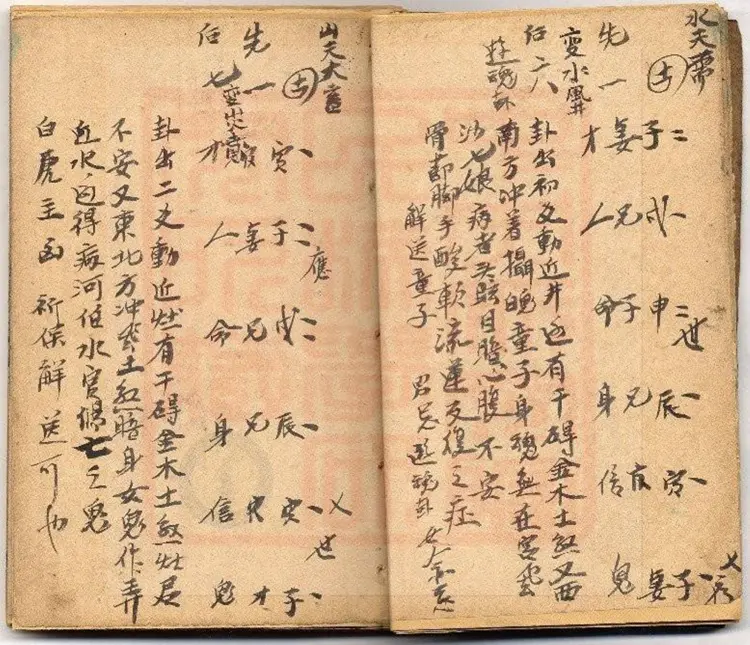 水天需
吉
子 戌 申 世 辰 寅 子 应
先一 妻 兄 子 兄 官 妻
才 人 命 身 信 鬼
變水風井
后六
遊魂卦
卦出初爻動近井边有干碍金木土煞又西
南方冲着攝魄童子身魂無在宮
七娘病者头眩目脹心腹不安
骨節脚手酸軟流連反復之症
解送童子 男忌遊魂卦 女命忌
山天大畜
吉
應 世
寅 子 戌 辰 寅 子
先一 妻 兄 兄 官 才
才 人 命 身 信 鬼
后七
卦出二爻動近灶有干碍金木土煞灶君
不安又東北方冲着土煞身女鬼作弄
血水得病河伯水官傷亡之鬼
白虎主凶 祈保解送可也